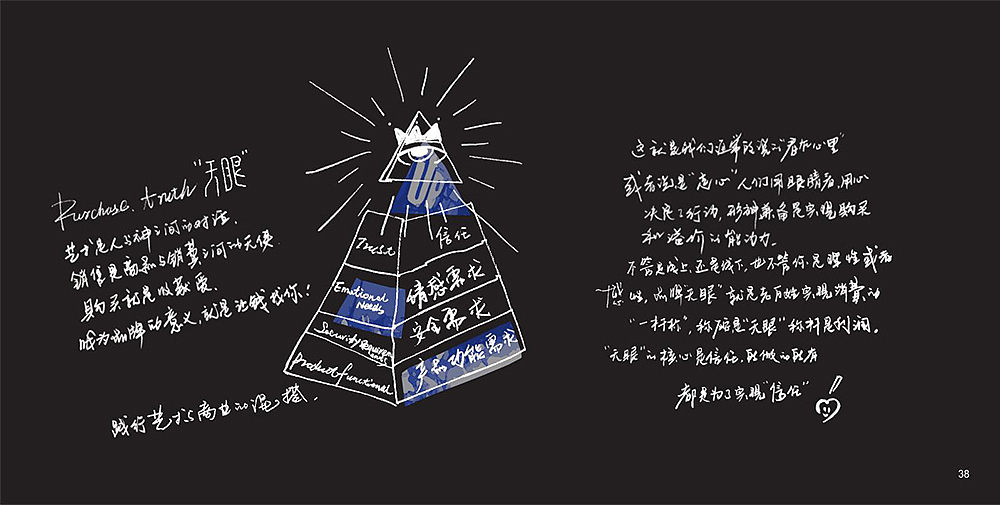 Purchase. truth "天眼"
艺术是人与神之间的对话.
销售是商品与销费之间的天使.
购买就是以载爱.
成为品牌的意义,就是让钱找你!
践行艺术与商业的混搭.
UP
Trust
信任
Emotional Needs
情感需求
Security Requirements Needs
安全需求
Product functional
产品功能需求
这就是我们经常说"看在心里"
或者说是"走心"人们用眼睛看,用心
决定了行动,形神兼备是实现购买
和溢价的能动力.
不管是线上还是线下,也不管你是理性或者
感性,品牌"天眼"就是老百姓实现消费的
"一杆称",称砣是"天眼"称杆是利润。
"天眼"的核心是信任,所做的所有
都是为了实现"信任"
38